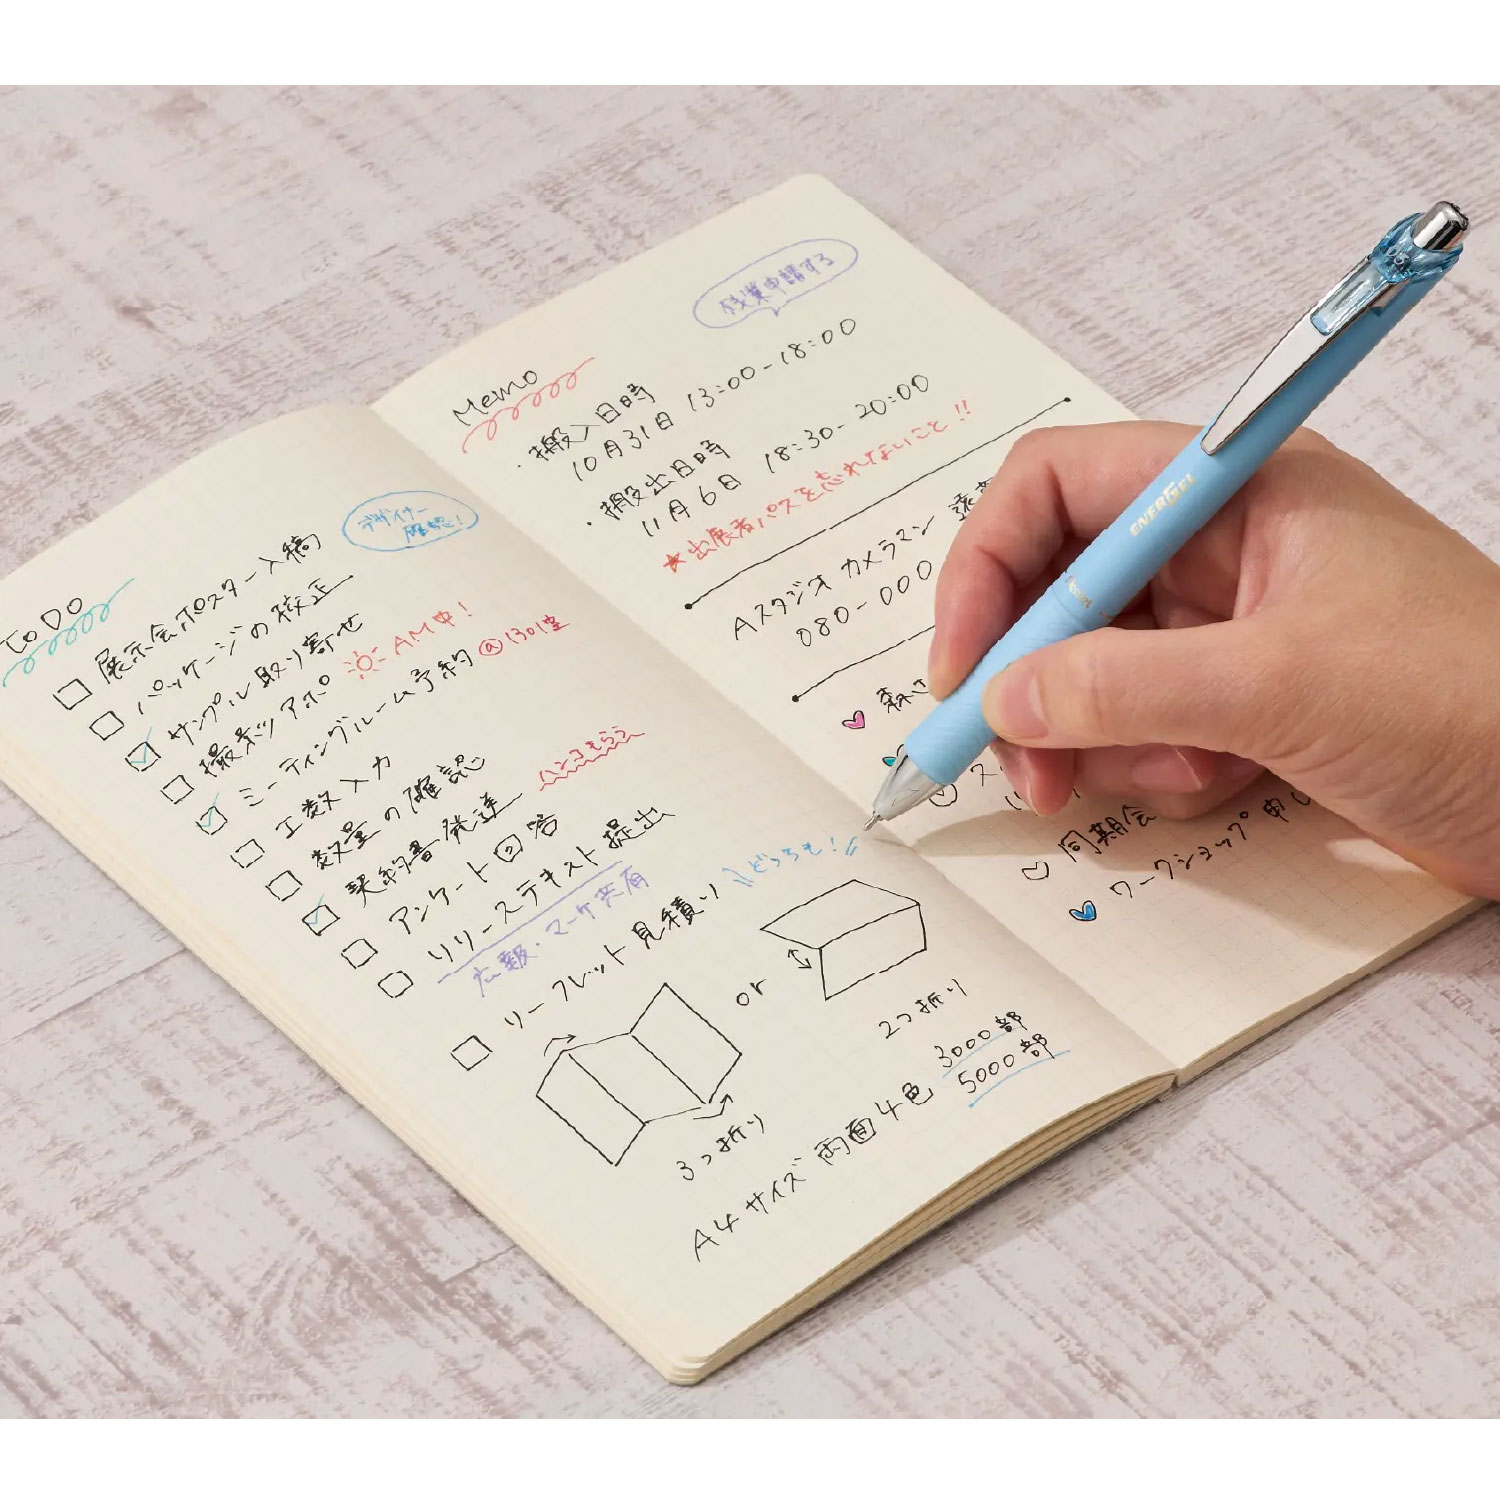 To Do
デザイナー
確認!
展示会ポスター入稿
パッケージの校正
サンプル取り寄せ
撮影アポ AM中!
ミーティングルーム予約 @1301室
工数入力
数量の確認
契約書発送 ハンコもらう
アンケート回答
リリーステキスト提出
広報・マーケ共有
リーフレット見積り どっちも!
or
3つ折り
2つ折り
A4サイズ 両面4色
3000部
5000部
残業申請する
Memo
・搬入日時
10月31日 13:00-18:00
・搬出日時
11月6日 18:30-20:00
★出展者パスを忘れないこと!!
Aスタジオ カメラマン
080-000
森
ス
同期会
ワークショップ申
ENERGEL
0.5